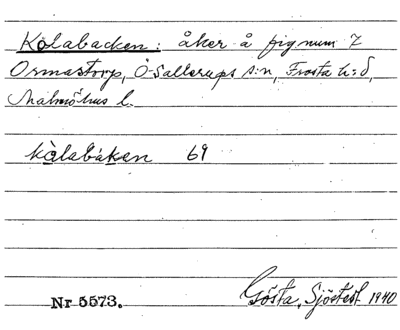 Kolabacken: åker å fig num 7
Ormastorp, Ö Sallerups s:n, Frosta h:d,
Malmöhus l.
kòlabàken 69
Nr 5573. Gösta Sjöstedt 1940